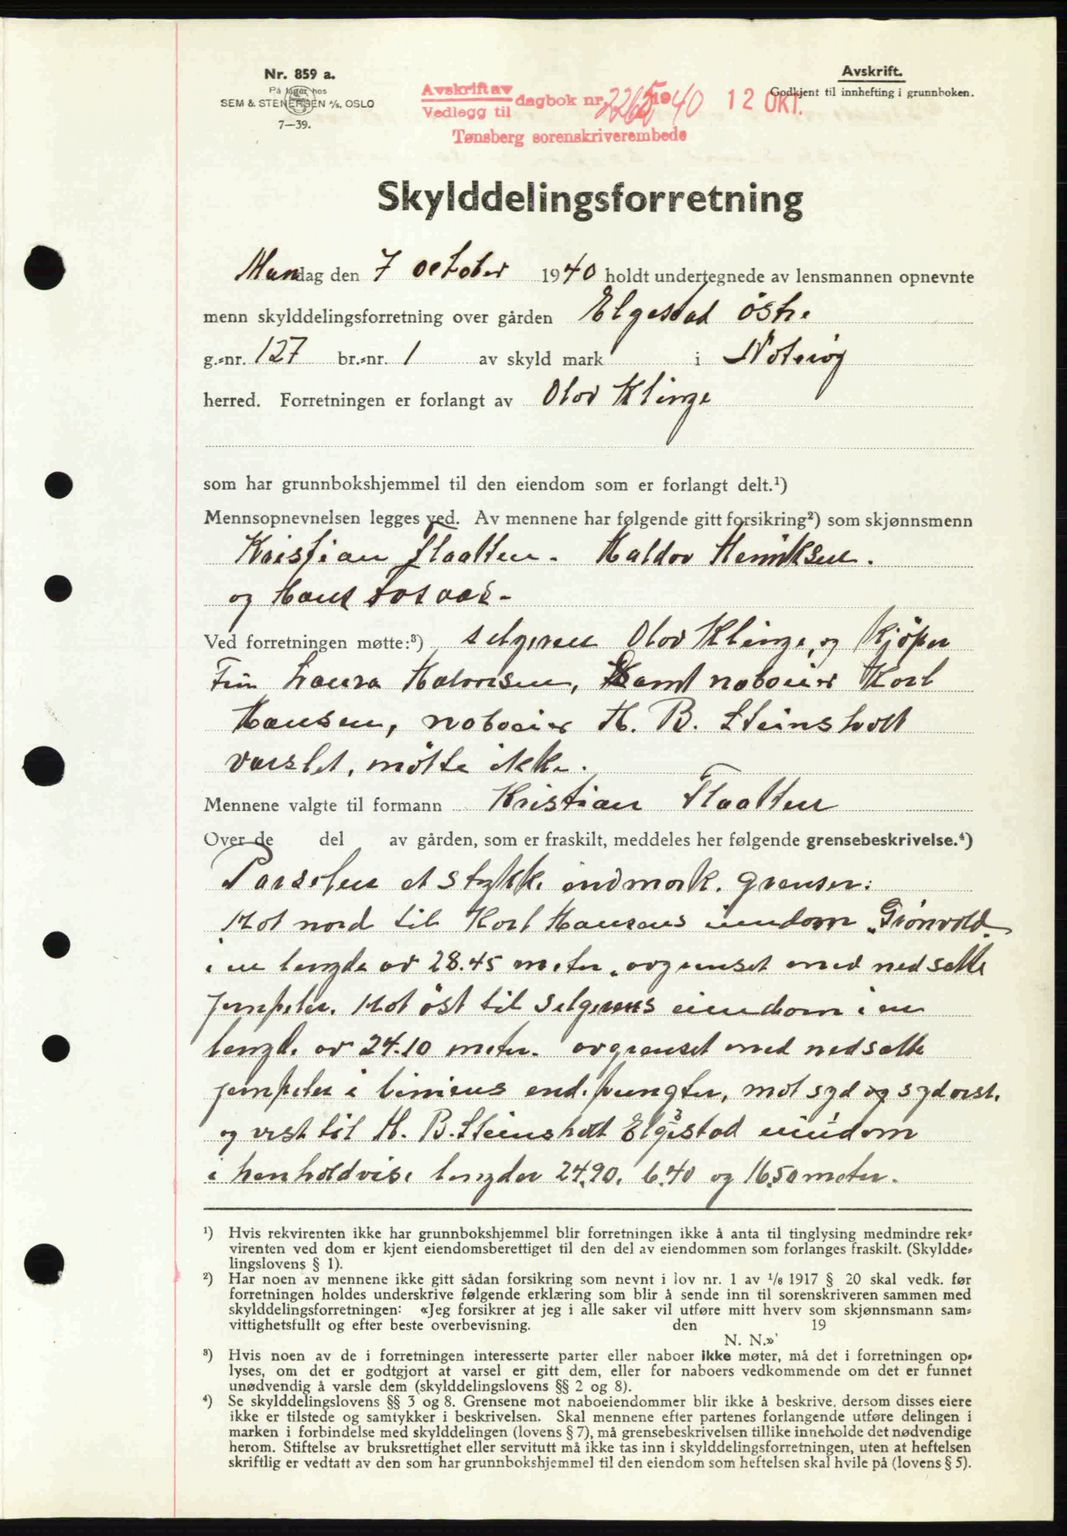 Nr. 859 a.
På lager hos
SEM & STENERSEN A/S, OSLO
7—39.
Avskrift av
Vedlegg til dagbok nr. 2265 1940 12 OKT.
Tønsberg sorenskriverembede
Avskrift.
Godkjent til innhefting i grunnboken.
Skylddelingsforretning
Mandag den 7 october 1940 holdt undertegnede av lensmannen opnevnte
menn skylddelingsforretning over gården Elgestad östre
g.-nr. 127 br.-nr. 1 av skyld mark i Noteröy
herred. Forretningen er forlangt av Olov Klinge
som har grunnbokshjemmel til den eiendom som er forlangt delt.¹)
Mennsopnevnelsen legges ved. Av mennene har følgende gitt forsikring²) som skjønnsmenn
Kristian Flaatten. Haldor Henriksen.
og Hans
Ved forretningen møtte:³) selgeren Olov Klinge, og kjöper
Fru Laura Halvorsen, samt naboeier Karl
Hansen, naboeier H. B. Steinsholt
varslet, mötte ikke.
Mennene valgte til formann Kristian Flaatten
Over de del av gården, som er fraskilt, meddeles her følgende grensebeskrivelse.⁴)
Parsellen et stykke indmark. grenser:
Mot nord til Karl Hansens eiendom „Grönvold"
i en lengde av 28.45 meter, avgrenset med nedsatte
jernpeler. Mot öst til selgerens eiendom i en
lengde av 24.10 meter. avgrenset med nedsatte
jernpeler i liniens endepungter, mot syd og sydvest.
og vest til H. B. Steinsholt Elgestad eiendom
i henholdvise lengder 24.90, 6.40 og 16.50 meter.
¹) Hvis rekvirenten ikke har grunnbokshjemmel blir forretningen ikke å anta til tinglysing medmindre rek-
virenten ved dom er kjent eiendomsberettiget til den del av eiendommen som forlanges fraskilt. (Skyldde-
lingslovens § 1).
²) Har noen av mennene ikke gitt sådan forsikring som nevnt i lov nr. 1 av 1/6 1917 § 20 skal vedk. før
forretningen holdes underskrive følgende erklæring som blir å sende inn til sorenskriveren sammen med
skylddelingsforretningen: «Jeg forsikrer at jeg i alle saker vil utføre mitt hverv som skjønnsmann sam-
vittighetsfullt og efter beste overbevisning. den 19
N. N.»
³) Hvis noen av de i forretningen interesserte parter eller naboer ikke møter, må det i forretningen op-
lyses, om det er godtgjort at varsel er gitt dem, eller for naboers vedkommende om det er funnet
unødvendig å varsle dem (skylddelingslovens §§ 2 og 8).
⁴) Se skylddelingslovens §§ 3 og 8. Grensene mot naboeiendommer blir ikke å beskrive, dersom disses eiere
ikke er tilstede og samtykker i beskrivelsen. Skal mennene efter partenes forlangende utføre delingen i
marken i forbindelse med skylddelingen (lovens § 7), må grensebeskrivelsen tillike inneholde det nødvendige
herom. Stiftelse av bruksrettighet eller servitutt må ikke tas inn i skylddelingsforretningen, uten at heftelsen
skriftlig er vedtatt av den som har grunnbokshjemmel til den eiendom som heftelsen skal hvile på (lovens § 5).